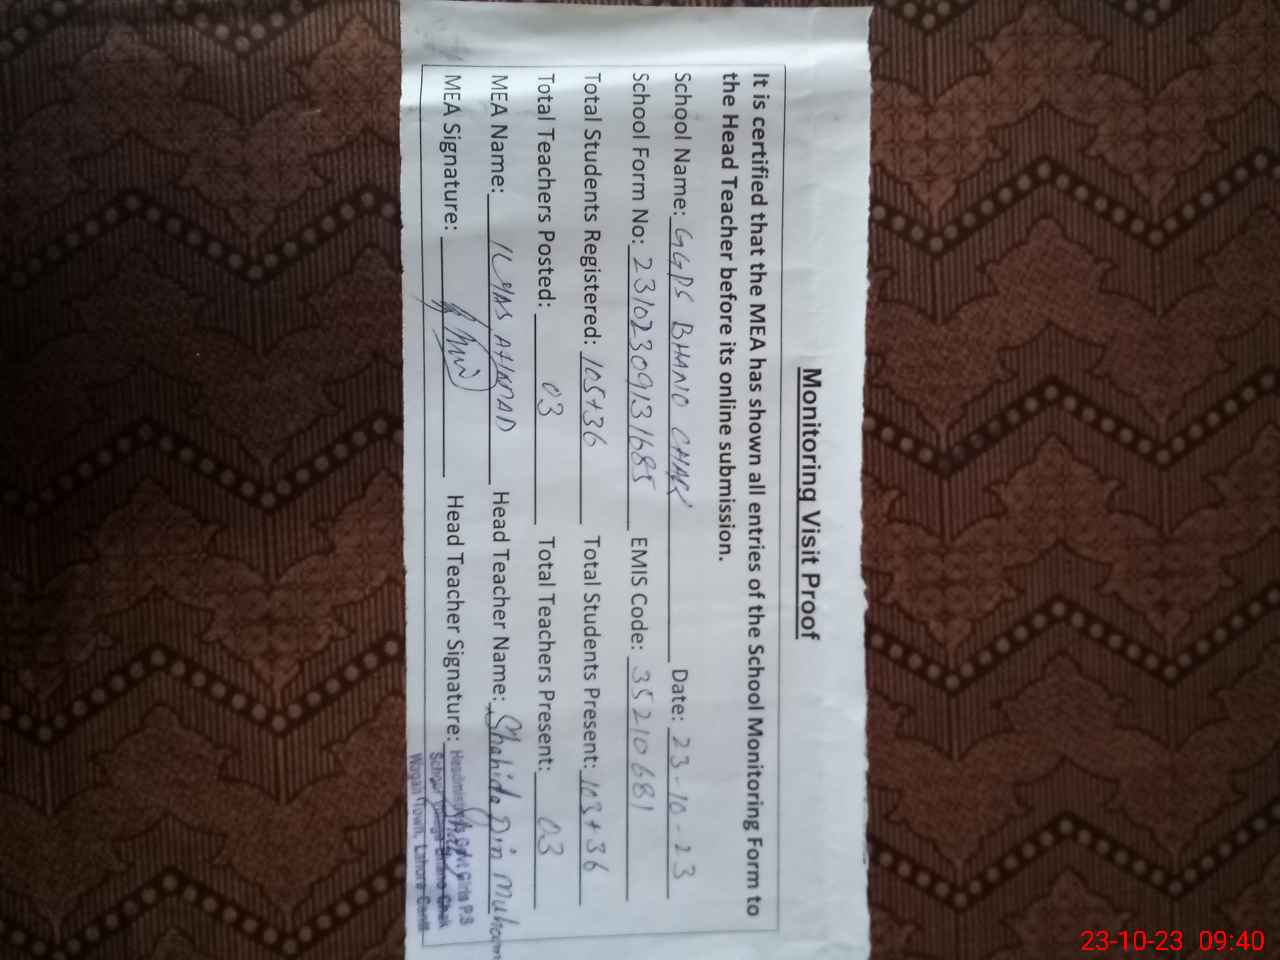 Monitoring Visit Proof
It is certified that the MEA has shown all entries of the School Monitoring Form to
the Head Teacher before its online submission.
School Name: GGPS BHANO CHAK Date: 23-10-23
School Form No: 23102309131685 EMIS Code: 35210681
Total Students Registered: 105+36 Total Students Present: 103+36
Total Teachers Posted: 03 Total Teachers Present: 03
MEA Name: ILYAS AHMAD Head Teacher Name: Shahida Din Muham
MEA Signature: Head Teacher Signature:
Headmistress Govt Girls P.S
School Bhano Chak
Wagah Town, Lahore Cantt
23-10-23 09:40